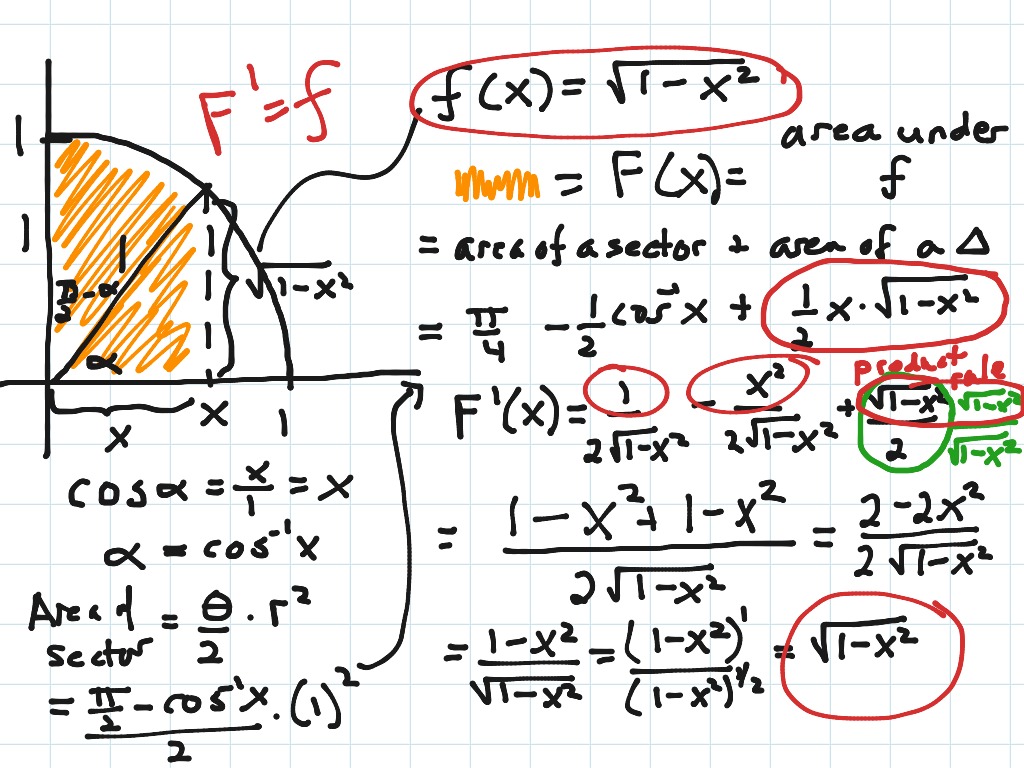 F' = f
f(x) = √(1 - x²)
area under
= F(x) = f
= area of a sector + area of a Δ
= π/4 - 1/2 cos⁻¹x + 1/2 x · √(1 - x²)
product rule
F'(x) = 1/(2√(1-x²)) - x²/(2√(1-x²)) + √(1-x²)/2 √(1-x²)/√(1-x²)
= (1 - x² + 1 - x²)/(2√(1-x²)) = (2 - 2x²)/(2√(1-x²))
= (1-x²)/√(1-x²) = (1-x²)¹/(1-x²)^(1/2) = √(1-x²)
1
1
1
π/2 - α
α
√(1-x²)
x 1
x
cos α = x/1 = x
α = cos⁻¹x
Area of
sector = θ/2 · r²
= (π/2 - cos⁻¹x)/2 · (1)²